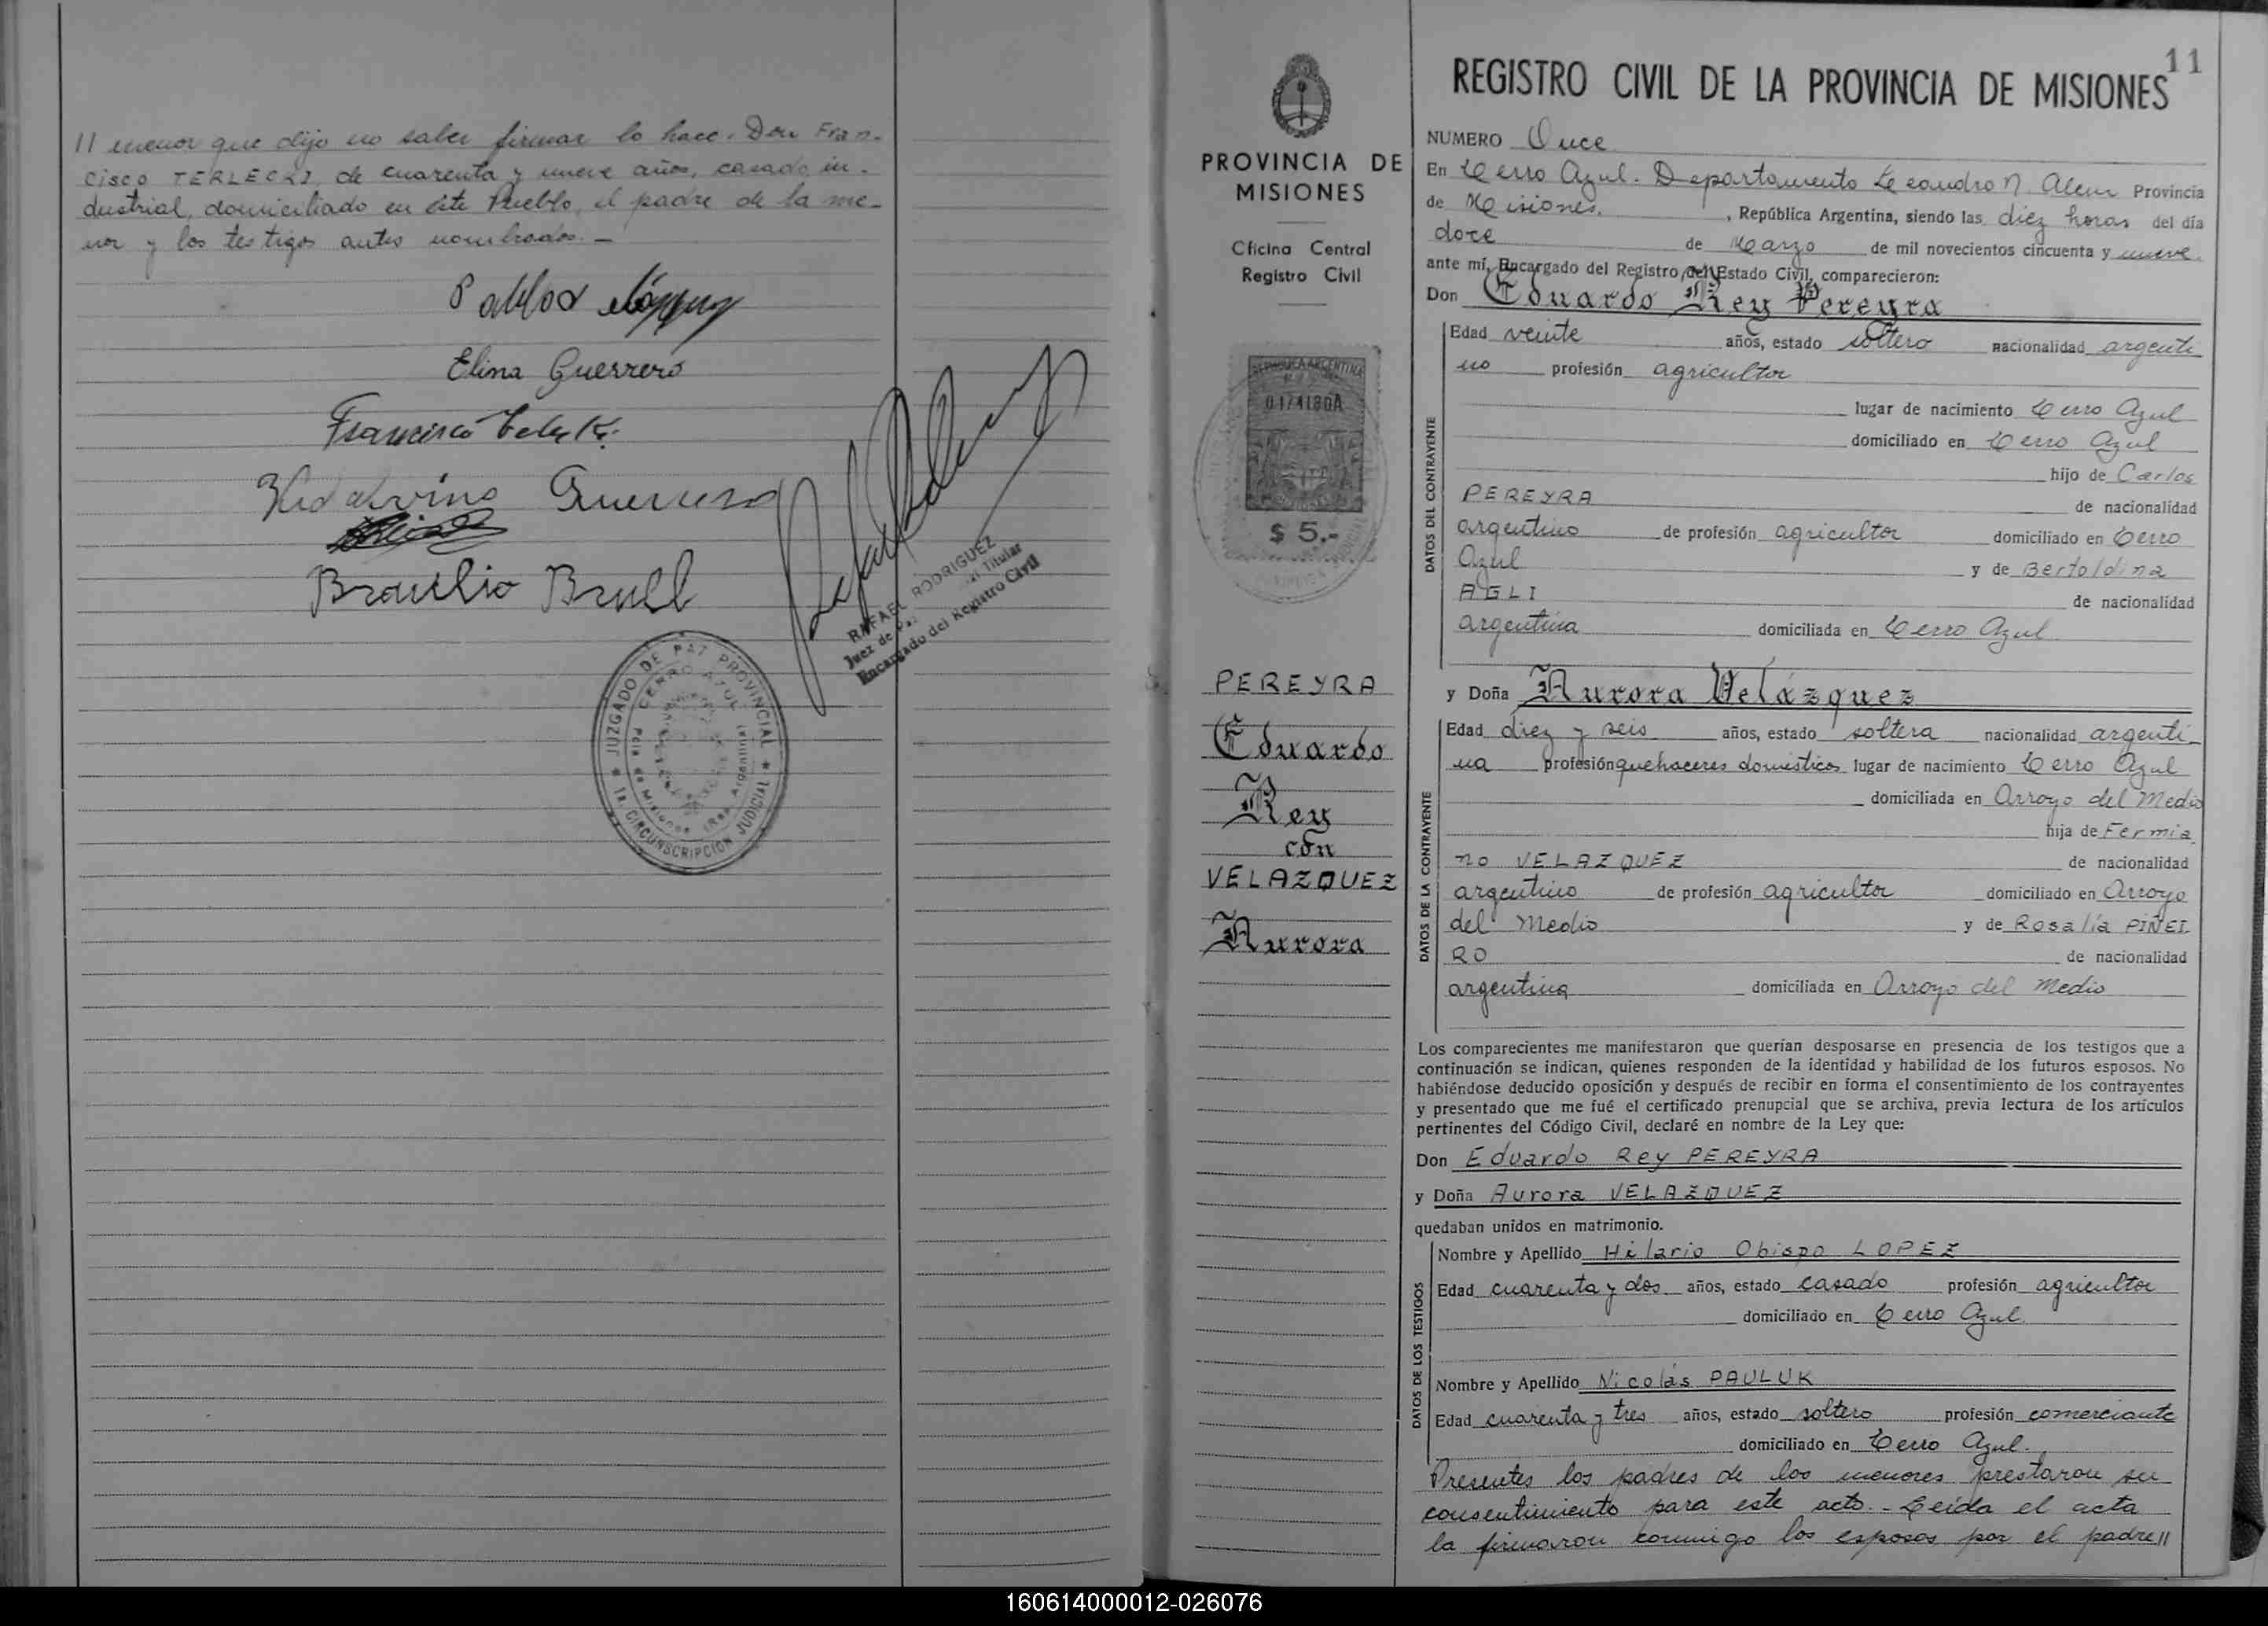 11 menor que dijo no saber firmar lo hace. Don Fran-
cisco TERLECKI, de cuarenta y nueve años, casado, in-
dustrial, domiciliado en éste Pueblo, el padre de la me-
nor y los testigos antes nombrados.-
Pablo
Elina Guerrero
Francisco
Guerrero
Braulio Brull
RAFAEL RODRIGUEZ
Juez de Paz Titular
Encargado del Registro Civil
JUZGADO DE PAZ PROVINCIAL
CERRO AZUL
Pcia de Misiones (Rep. Argentina)
1a. CIRCUNSCRIPCION JUDICIAL
PROVINCIA DE
MISIONES
Oficina Central
Registro Civil
REPUBLICA ARGENTINA
$ 5.-
PEREYRA
Eduardo
Rey
con
VELAZQUEZ
Aurora
11
REGISTRO CIVIL DE LA PROVINCIA DE MISIONES
NUMERO Once
En Cerro Azul. Departamento Leandro N. Alem Provincia
de Misiones, , República Argentina, siendo las diez horas del día
doce de Marzo de mil novecientos cincuenta y nueve
ante mí, Encargado del Registro del Estado Civil, comparecieron:
Don Eduardo Rey Pereyra
DATOS DEL CONTRAYENTE
Edad veinte años, estado soltero nacionalidad argenti
no profesión agricultor
lugar de nacimiento Cerro Azul
domiciliado en Cerro Azul
hijo de Carlos
PEREYRA de nacionalidad
argentino de profesión agricultor domiciliado en Cerro
Azul y de Bertoldina
AGLI de nacionalidad
argentina domiciliada en Cerro Azul
y Doña Aurora Velázquez
DATOS DE LA CONTRAYENTE
Edad diez y seis años, estado soltera nacionalidad argenti-
na profesión quehaceres domésticos lugar de nacimiento Cerro Azul
domiciliada en Arroyo del Medio
hija de Fermia
no VELAZQUEZ de nacionalidad
argentino de profesión agricultor domiciliado en Arroyo
del Medio y de Rosalía PIÑEI
RO de nacionalidad
argentina domiciliada en Arroyo del Medio
Los comparecientes me manifestaron que querían desposarse en presencia de los testigos que a
continuación se indican, quienes responden de la identidad y habilidad de los futuros esposos. No
habiéndose deducido oposición y después de recibir en forma el consentimiento de los contrayentes
y presentado que me fué el certificado prenupcial que se archiva, previa lectura de los artículos
pertinentes del Código Civil, declaré en nombre de la Ley que:
Don Eduardo Rey PEREYRA
y Doña Aurora VELAZQUEZ
quedaban unidos en matrimonio.
DATOS DE LOS TESTIGOS
Nombre y Apellido Hilario Obispo LOPEZ
Edad cuarenta y dos años, estado casado profesión agricultor
domiciliado en Cerro Azul
Nombre y Apellido Nicolás PAULUK
Edad cuarenta y tres años, estado soltero profesión comerciante
domiciliado en Cerro Azul.
Presentes los padres de los menores prestaron su
consentimiento para este acto.- Leída el acta
la firmaron conmigo los esposos por el padre 11
160614000012-026076